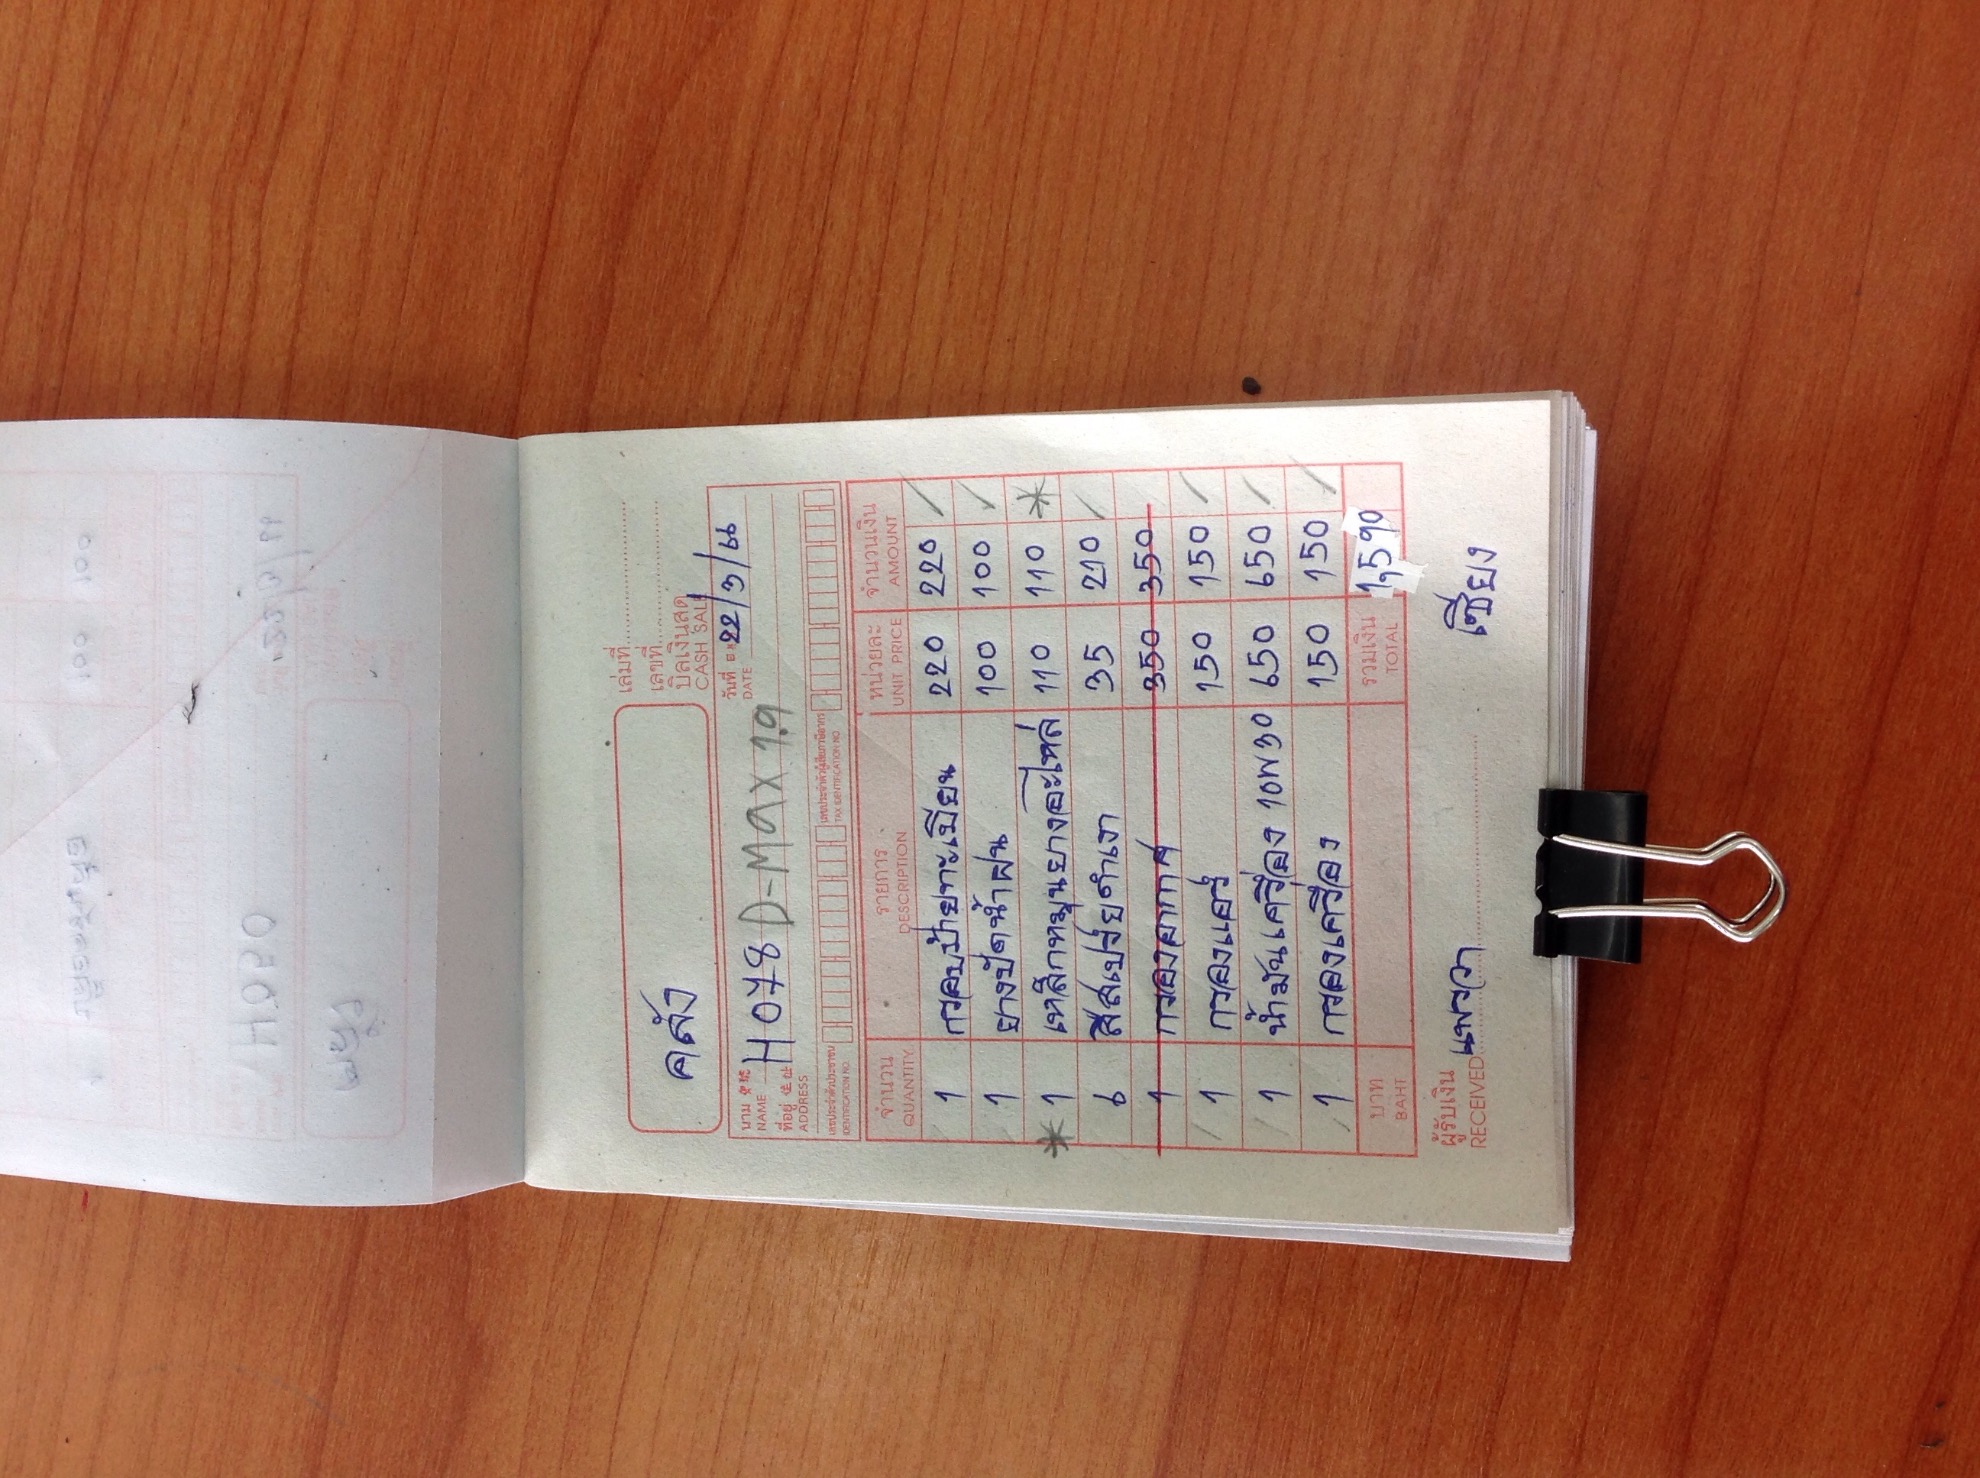 เล่มที่
เลขที่
บิลเงินสด
CASH SALE
คลัง
วันที่ 22/3/66
DATE
นาม H0788 D-Max 1.9
NAME
ที่อยู่
ADDRESS
เลขประจำตัวประชาชน เลขประจำตัวผู้เสียภาษีอากร
IDENTIFICATION NO. TAX IDENTIFICATION NO.
จำนวน รายการ หน่วยละ จำนวนเงิน
QUANTITY DESCRIPTION UNIT PRICE AMOUNT
1 กรอบป้ายทะเบียน 220 220
1 ยางปัดน้ำฝน 100 100
* 1 เหล็กหมุนยางอะไหล่ 110 110 *
6 สีสเปรย์ดำเงา 35 210
1 กรองอากาศ 350 350
1 กรองแอร์ 150 150
1 น้ำมันเครื่อง 10W30 650 650
1 กรองเครื่อง 150 150
บาท รวมเงิน 1,590
BAHT TOTAL
ผู้รับเงิน แพรวา เซียง
RECEIVED